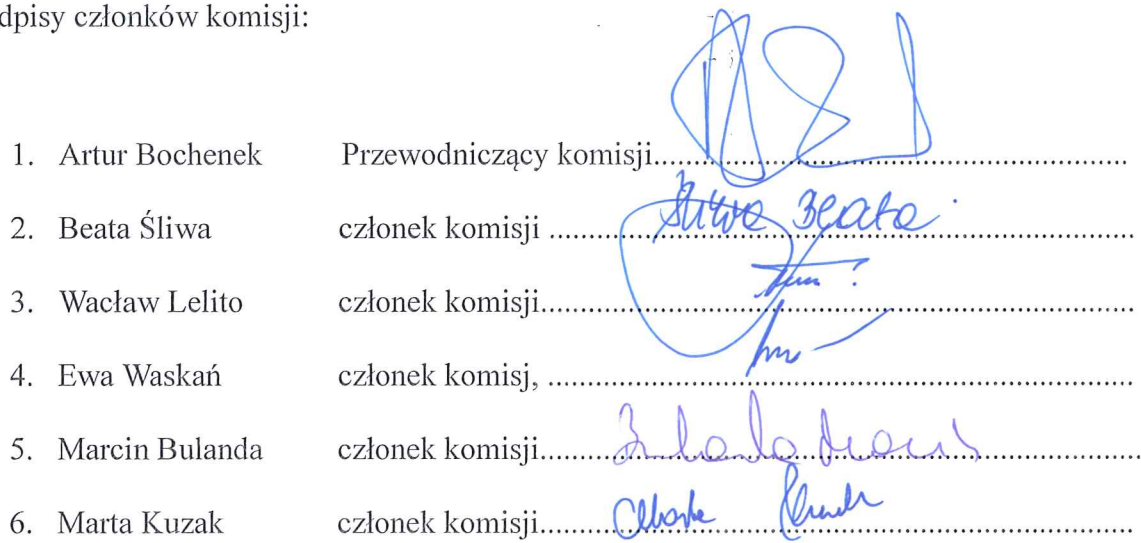 dpisy członków komisji:
1. Artur Bochenek Przewodniczący komisji..........
2. Beata Śliwa członek komisji .......... Śliwa Beata
3. Wacław Lelito członek komisji..........
4. Ewa Waskań członek komisj, ..........
5. Marcin Bulanda członek komisji.......... Bulanda Marcin
6. Marta Kuzak członek komisji.......... Marta Kuzak